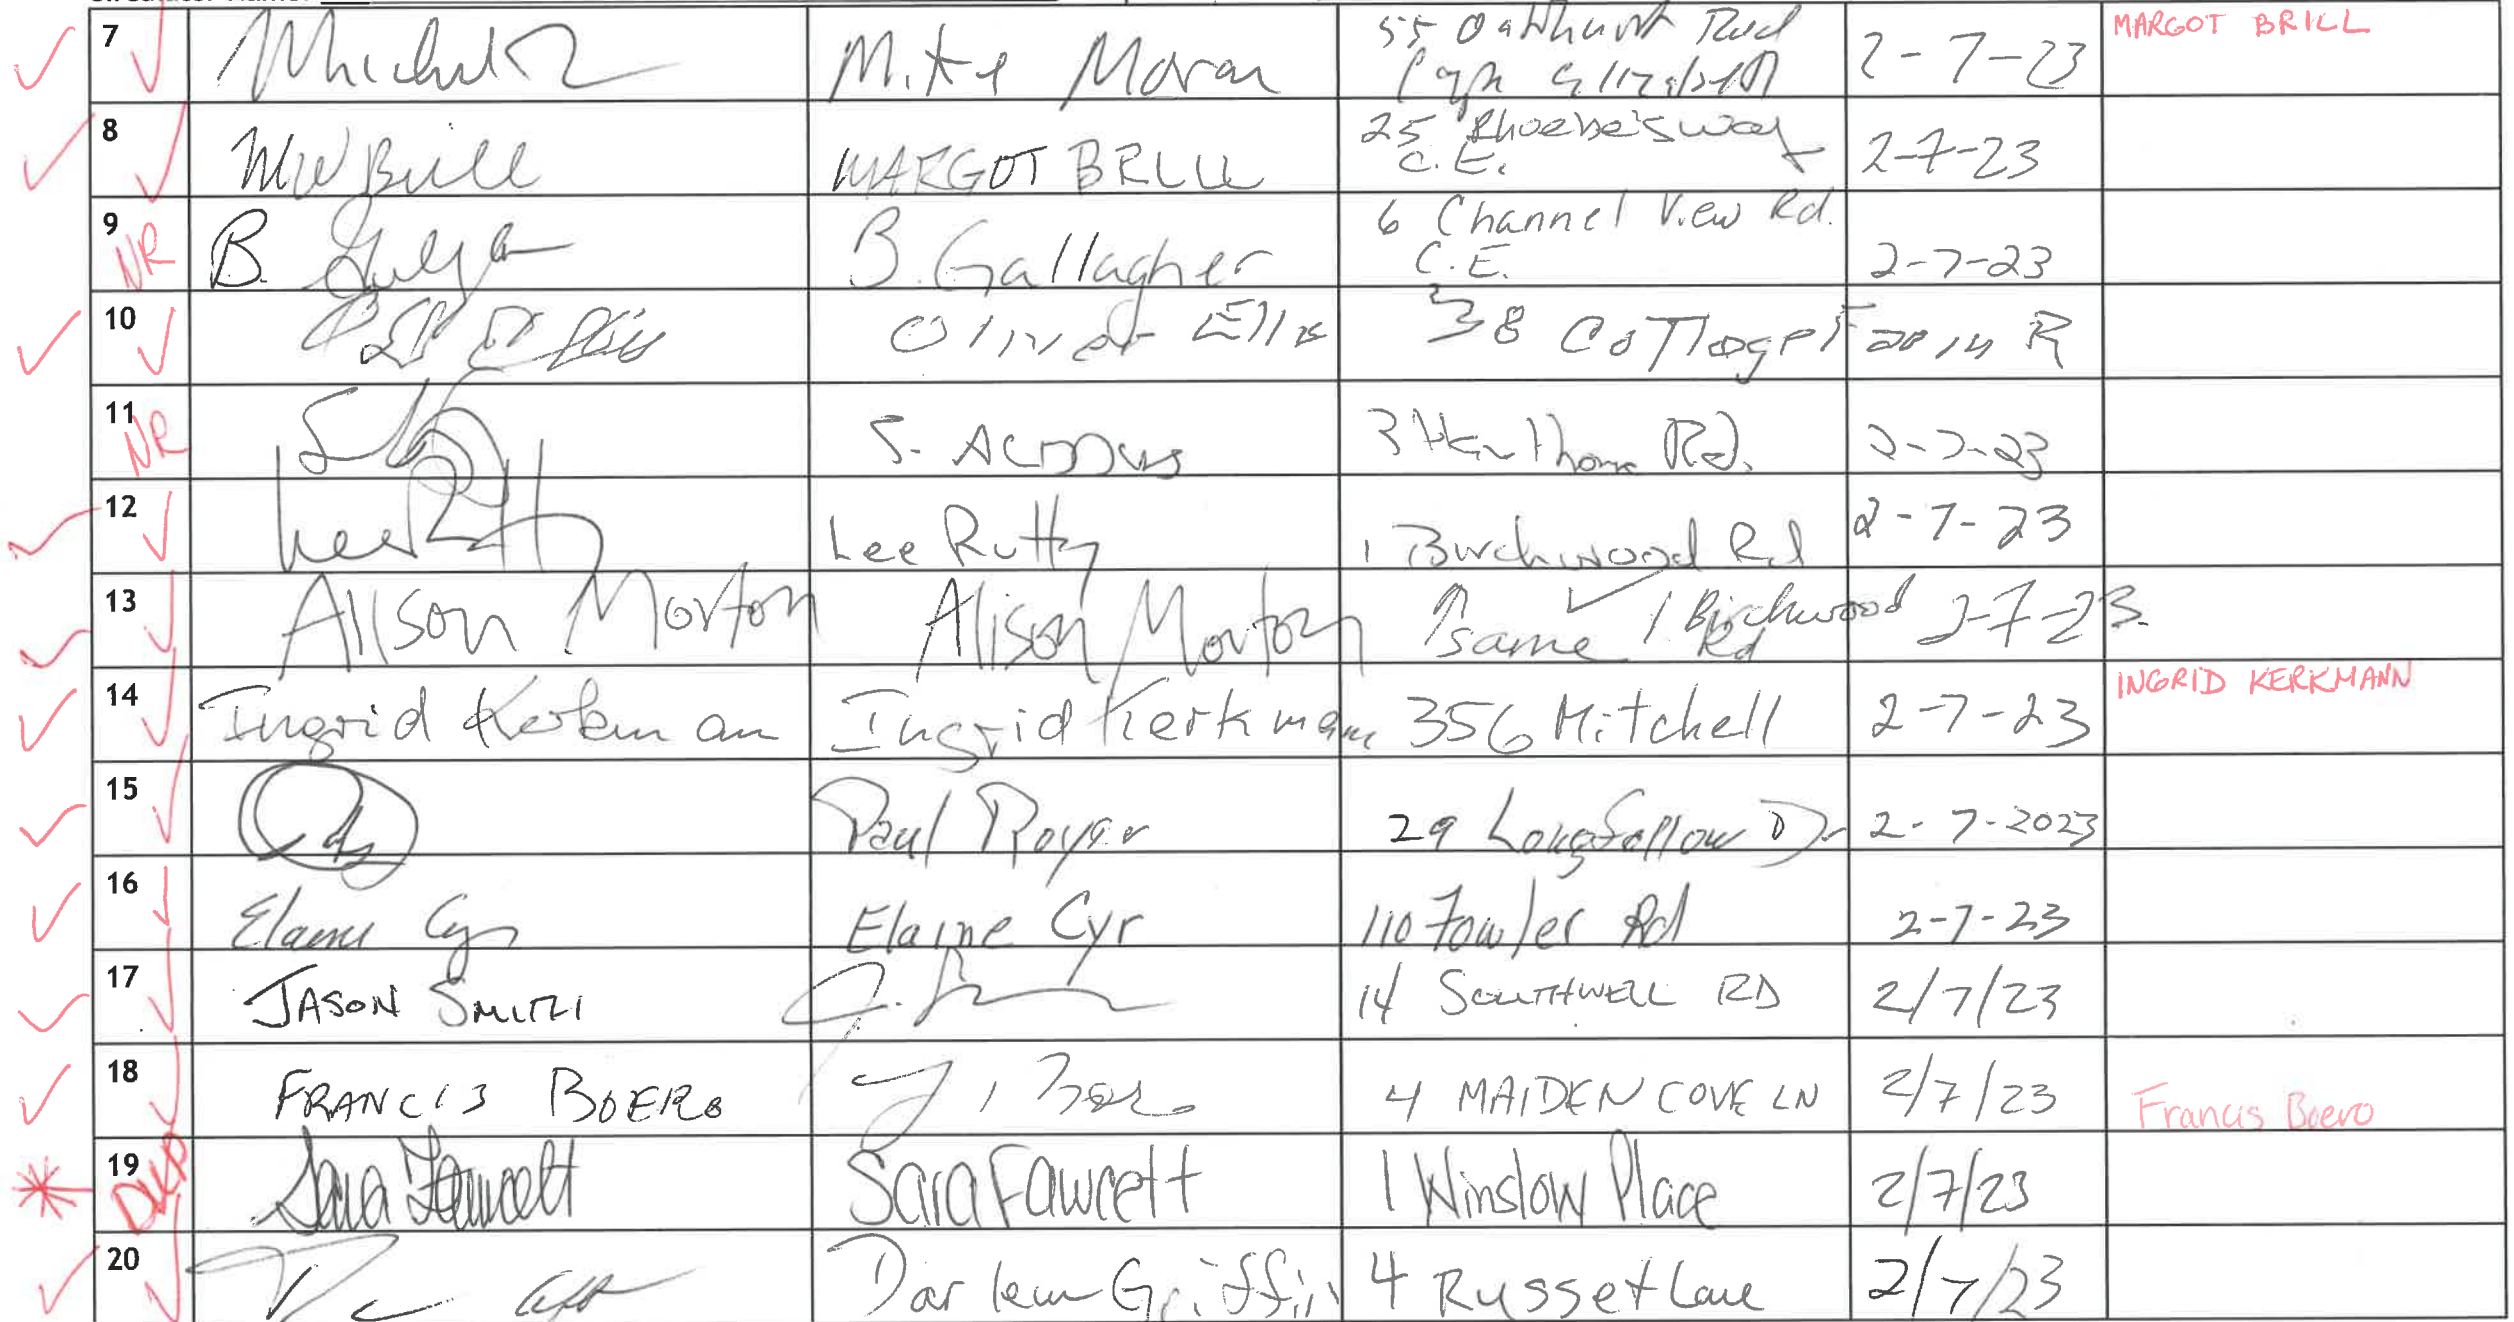 7 Mike Moran 55 Oakhurst Rd 2-7-23 MARGOT BRILL
Cape Elizabeth
8 MW Brill MARGOT BRILL 25 Phoebe's Way 2-7-23
C.E.
9 NR B. B. Gallagher 6 Channel View Rd. 2-7-23
C.E.
10 Oliver Ellis 38 Cottage Farm R
11 NR S. Rd. 2-7-23
12 Lee Rutty Lee Rutty 1 Birchwood Rd 2-7-23
13 Alison Morton Alison Morton same 1 Birchwood Rd 2-7-23.
14 Ingrid Kerkman Ingrid Kerkmann 356 Mitchell 2-7-23 INGRID KERKMANN
15 Paul Royer 29 Longfellow Dr 2-7-2023
16 Elaine Cyr Elaine Cyr 110 Fowler Rd 2-7-23
17 JASON SMITH J. 14 SOUTHWELL RD 2/7/23
18 FRANCIS BOERO 4 MAIDEN COVE LN 2/7/23 Francis Boero
19 DUP Sara Fawcett Sara Fawcett 1 Winslow Place 2/7/23
20 Darleen Griffin 4 Russet Lane 2/7/23